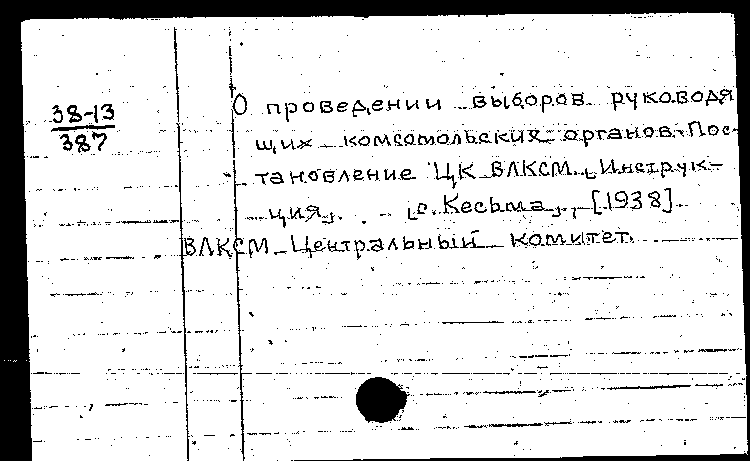 38-13
387
О проведении выборов руководя
щих комсомольских органов. Пос-
тановление ЦК ВЛКСМ. Инструк-
ция. [с. Кесьма], [1938].
ВЛКСМ Центральный комитет.